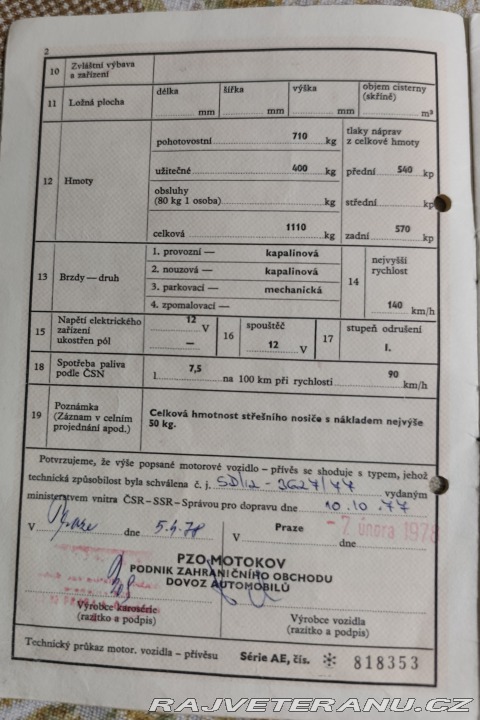 2
10 Zvláštní výbava
a zařízení
11 Ložná plocha délka mm šířka mm výška mm objem cisterny
(skříně) m³
12 Hmoty
pohotovostní 710 kg
užitečné 400 kg
obsluhy
(80 kg 1 osoba) kg
celková 1110 kg
tlaky náprav
z celkové hmoty
přední 540 kp
střední kp
zadní 570 kp
13 Brzdy — druh
1. provozní — kapalinová
2. nouzová — kapalinová
3. parkovací — mechanická
4. zpomalovací —
14 nejvyšší
rychlost
140 km/h
15 Napětí elektrického
zařízení
ukostřen pól
12 V
—
16 spouštěč
12 V
17 stupeň odrušení
I.
18 Spotřeba paliva
podle ČSN
l 7,5 na 100 km při rychlosti 90 km/h
19 Poznámka
(Záznam v celním
projednání apod.)
Celková hmotnost střešního nosiče s nákladem nejvýše
50 kg.
Potvrzujeme, že výše popsané motorové vozidlo – přívěs se shoduje s typem, jehož
technická způsobilost byla schválena č. j. SD/12 - 3627/77 vydaným
ministerstvem vnitra ČSR – SSR – Správou pro dopravu dne 10.10.77
V dne 5.4.78
Praze - 7. února 1978
V dne
PZO MOTOKOV
PODNIK ZAHRANIČNÍHO OBCHODU
DOVOZ AUTOMOBILŮ
Výrobce karosérie
(razítko a podpis)
Výrobce vozidla
(razítko a podpis)
Technický průkaz motor. vozidla – přívěsu Série AE, čís. 818353
RAJVETERANU.CZ